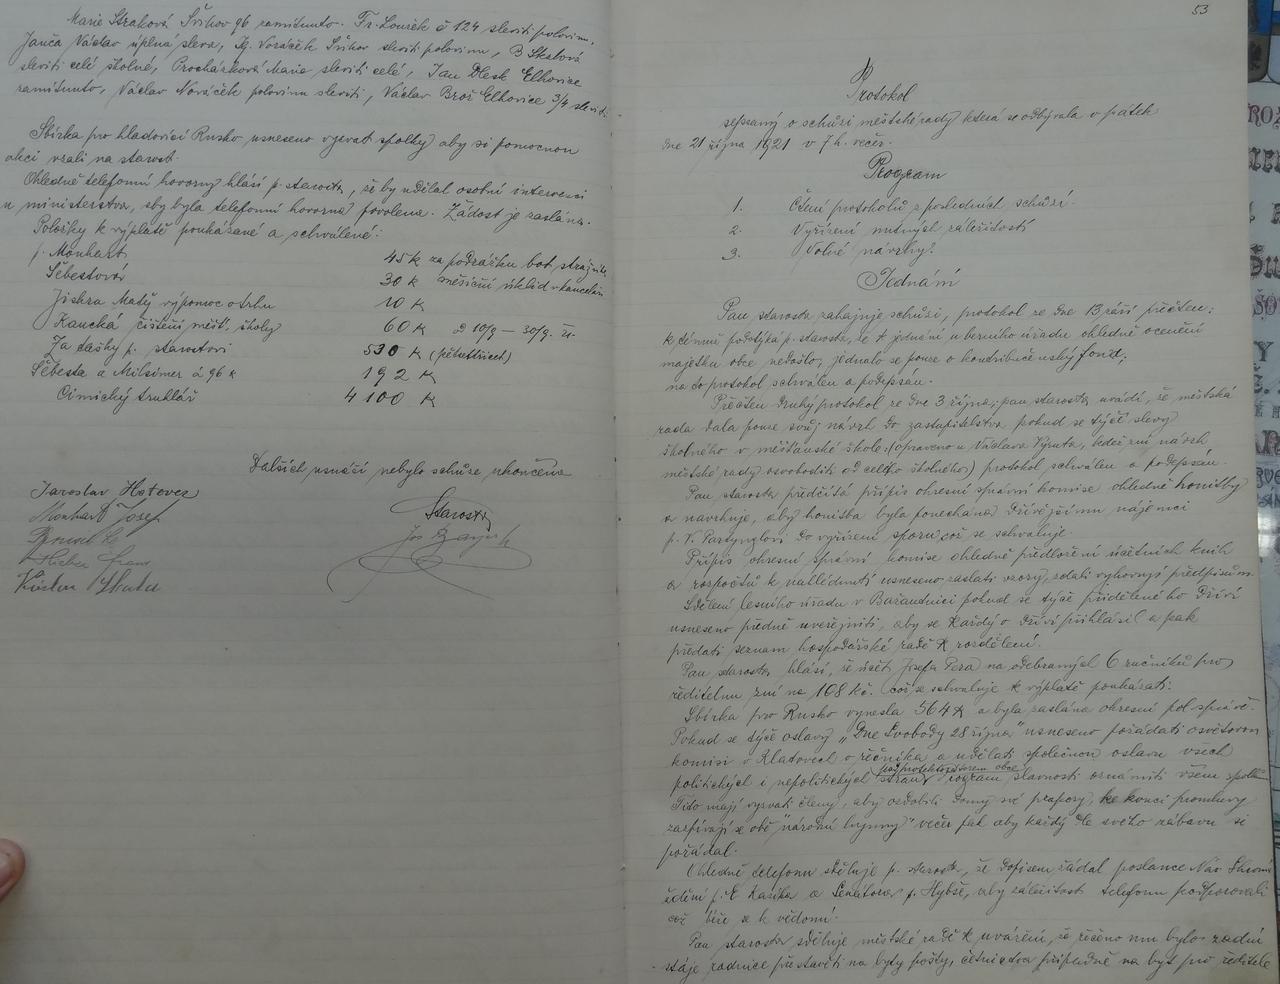 Marie Straková Švihov 96 zamítnuto. Fr. Lourek č 124 sleviti polovinu,
Janča Václav úplná sleva, Ig. Voráček Švihov sleviti polovinu, B Skalová
sleviti celé školné, Procházková Marie sleviti celé, Jan Elhovice
zamítnuto, Václav Nováček polovinu sleviti, Václav Brož Elhovice 3/4 sleviti.
Sbírka pro hladovící Rusko usneseno vyzvat spolky aby si pomocnou
akci vzali na starost.
Ohledně telefonní hovorny hlásí p. starosta, že by udělal osobní intervenci
u ministerstva, aby byla telefonní hovorna povolena. Žádost je zaslána.
Položky k výplatě poukázané a schválené:
p. Monhart 45 K za podrážku bot strážníka
Šebestová 30 K měsíční úklid v kanceláři
Jiskra Matěj výpomoc o trhu 10 K
Kaucká čištění měšť. školy 60 K od 10/9 – 30/9.
Za tašky p. starostovi 530 K (pětsettřicet)
Šebesta a Milsimer á 96 K 192 K
Cimický truhlář 4100 K
Dalších usnesení nebylo schůze ukončena
Jaroslav
Monhart Josef
Starosta
Jos
53
Protokol
sepsaný o schůzi městské rady která se odbývala v pátek
dne 21 října 1921 v 7 h. večer.
Program
1. Čtení protokolů z posledních schůzí.
2. Vyřízení nutných záležitostí
3. Volné návrhy.
Jednání
Pan starosta zahajuje schůzi, protokol ze dne 13 září přečten;
k čemuž podotýká p. starosta, že k jednání u berního úřadu ohledně ocenění
majetku obce nedošlo, jednalo se pouze o kontribučenský fond;
na to protokol schválen a podepsán.
Přečten druhý protokol ze dne 3 října; pan starosta uvádí, že městská
rada dala pouze svůj návrh do zastupitelstva pokud se týče slevy
školného v měšťanské škole. (opraveno u Václava kdež zní návrh
městské rady osvoboditi od celého školného) protokol schválen a podepsán.
Pan starosta předčítá přípis okresní správní komise ohledně honitby
a navrhuje, aby honitba byla ponechána dřívějšímu nájemci
p. V. Partynglovi do vyřízení sporu, což se schvaluje.
Přípis okresní správní komise ohledně předložení účetních knih
a rozpočtů k nahlédnutí usneseno zaslati vzory, zdali vyhovují předpisům.
Sdělení lesního úřadu v Bažantnici pokud se týče přiděleného dříví
usneseno předně uveřejniti, aby se každý o dříví přihlásil a pak
předati seznam hospodářské radě k rozdělení.
Pan starosta hlásí, že účet Josefa Pera na odebraných 6 ručníků pro
ředitelnu zní na 108 Kč. což se schvaluje k výplatě poukázati.
Sbírka pro Rusko vynesla 564 K a byla zaslána okresní pol. správě.
Pokud se týče oslavy „Dne Svobody 28 října" usneseno požádati osvětovou
komisi v Klatovech o řečníka a udělati společnou oslavu všech
pod protektorátem obce
politických i nepolitických stran, program slavnosti oznámiti všem spolkům.
Tito mají vyzvati členy, aby ozdobili domy své prapory, ke konci promluvy
zazpívají se obě "národní hymny" večer pak aby každý dle svého zábavu si
pořádal.
Ohledně telefonu sděluje p. starosta, že dopisem žádal poslance Nár. Shromá-
ždění p. E Kasíka a Senátora p. Hybše, aby záležitost telefonu podporovali
což béře se k vědomí.
Pan starosta sděluje městské radě k uvážení, že řečeno mu bylo zadní
stáje radnice přestavěti na byty pošty, četnictva případně na byt pro ředitele